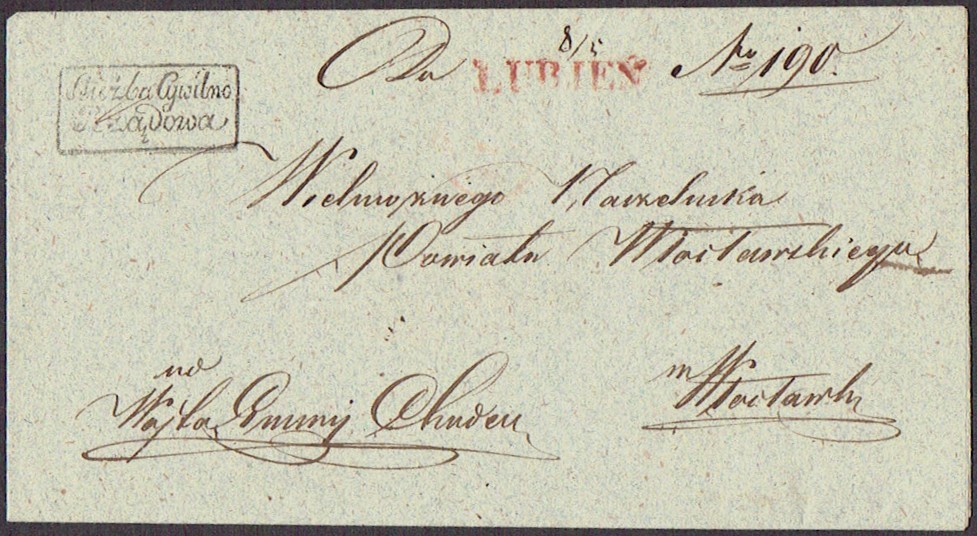 Służba Cywilno
Rządowa
Do
LUBIEŃ
8/5
No 190.
Wielmożnego Naczelnika
Powiatu Włocławskiego
od
Wójta Gminy
w Włocławku